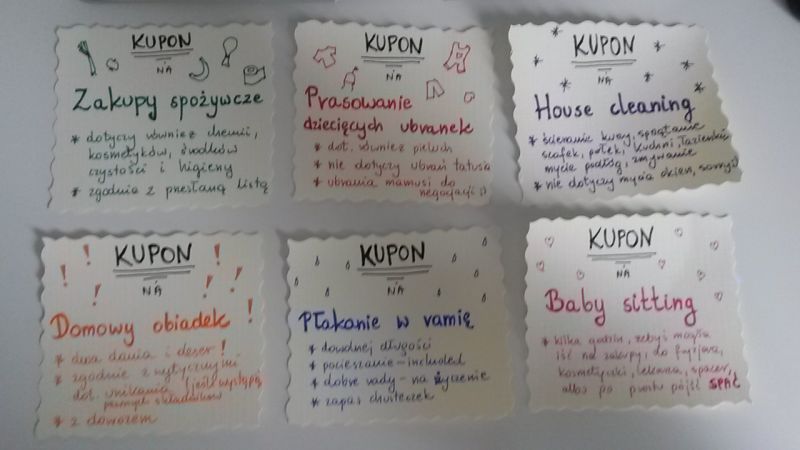 KUPON
NA
Zakupy spożywcze
* dotyczy również chemii,
kosmetyków, środków
czystości i higieny
* zgodnie z przesłaną listą
KUPON
NA
Prasowanie
dziecięcych ubranek
* dot. również pieluch
* nie dotyczy ubrań tatusia
* ubrania mamusi do
negocjacji :)
KUPON
NA
House cleaning
* ścieranie kurzy, sprzątanie
szafek, półek, kuchni, łazienki,
mycie podłóg, zmywanie
* nie dotyczy mycia okien, sorry :)
KUPON
NA
Domowy obiadek!
* dwa dania i deser!
* zgodnie z wytycznymi
dot. unikania (jeśli wystąpią)
pewnych składników
* z dowozem
KUPON
NA
Płakanie w ramię
* dowolnej długości
* pocieszanie - included
* dobre rady - na życzenie
* zapas chusteczek
KUPON
NA
Baby sitting
* kilka godzin, żebyś mogła
iść na zakupy, do fryzjera,
kosmetyczki, lekarza, spacer,
albo po prostu pójść SPAĆ